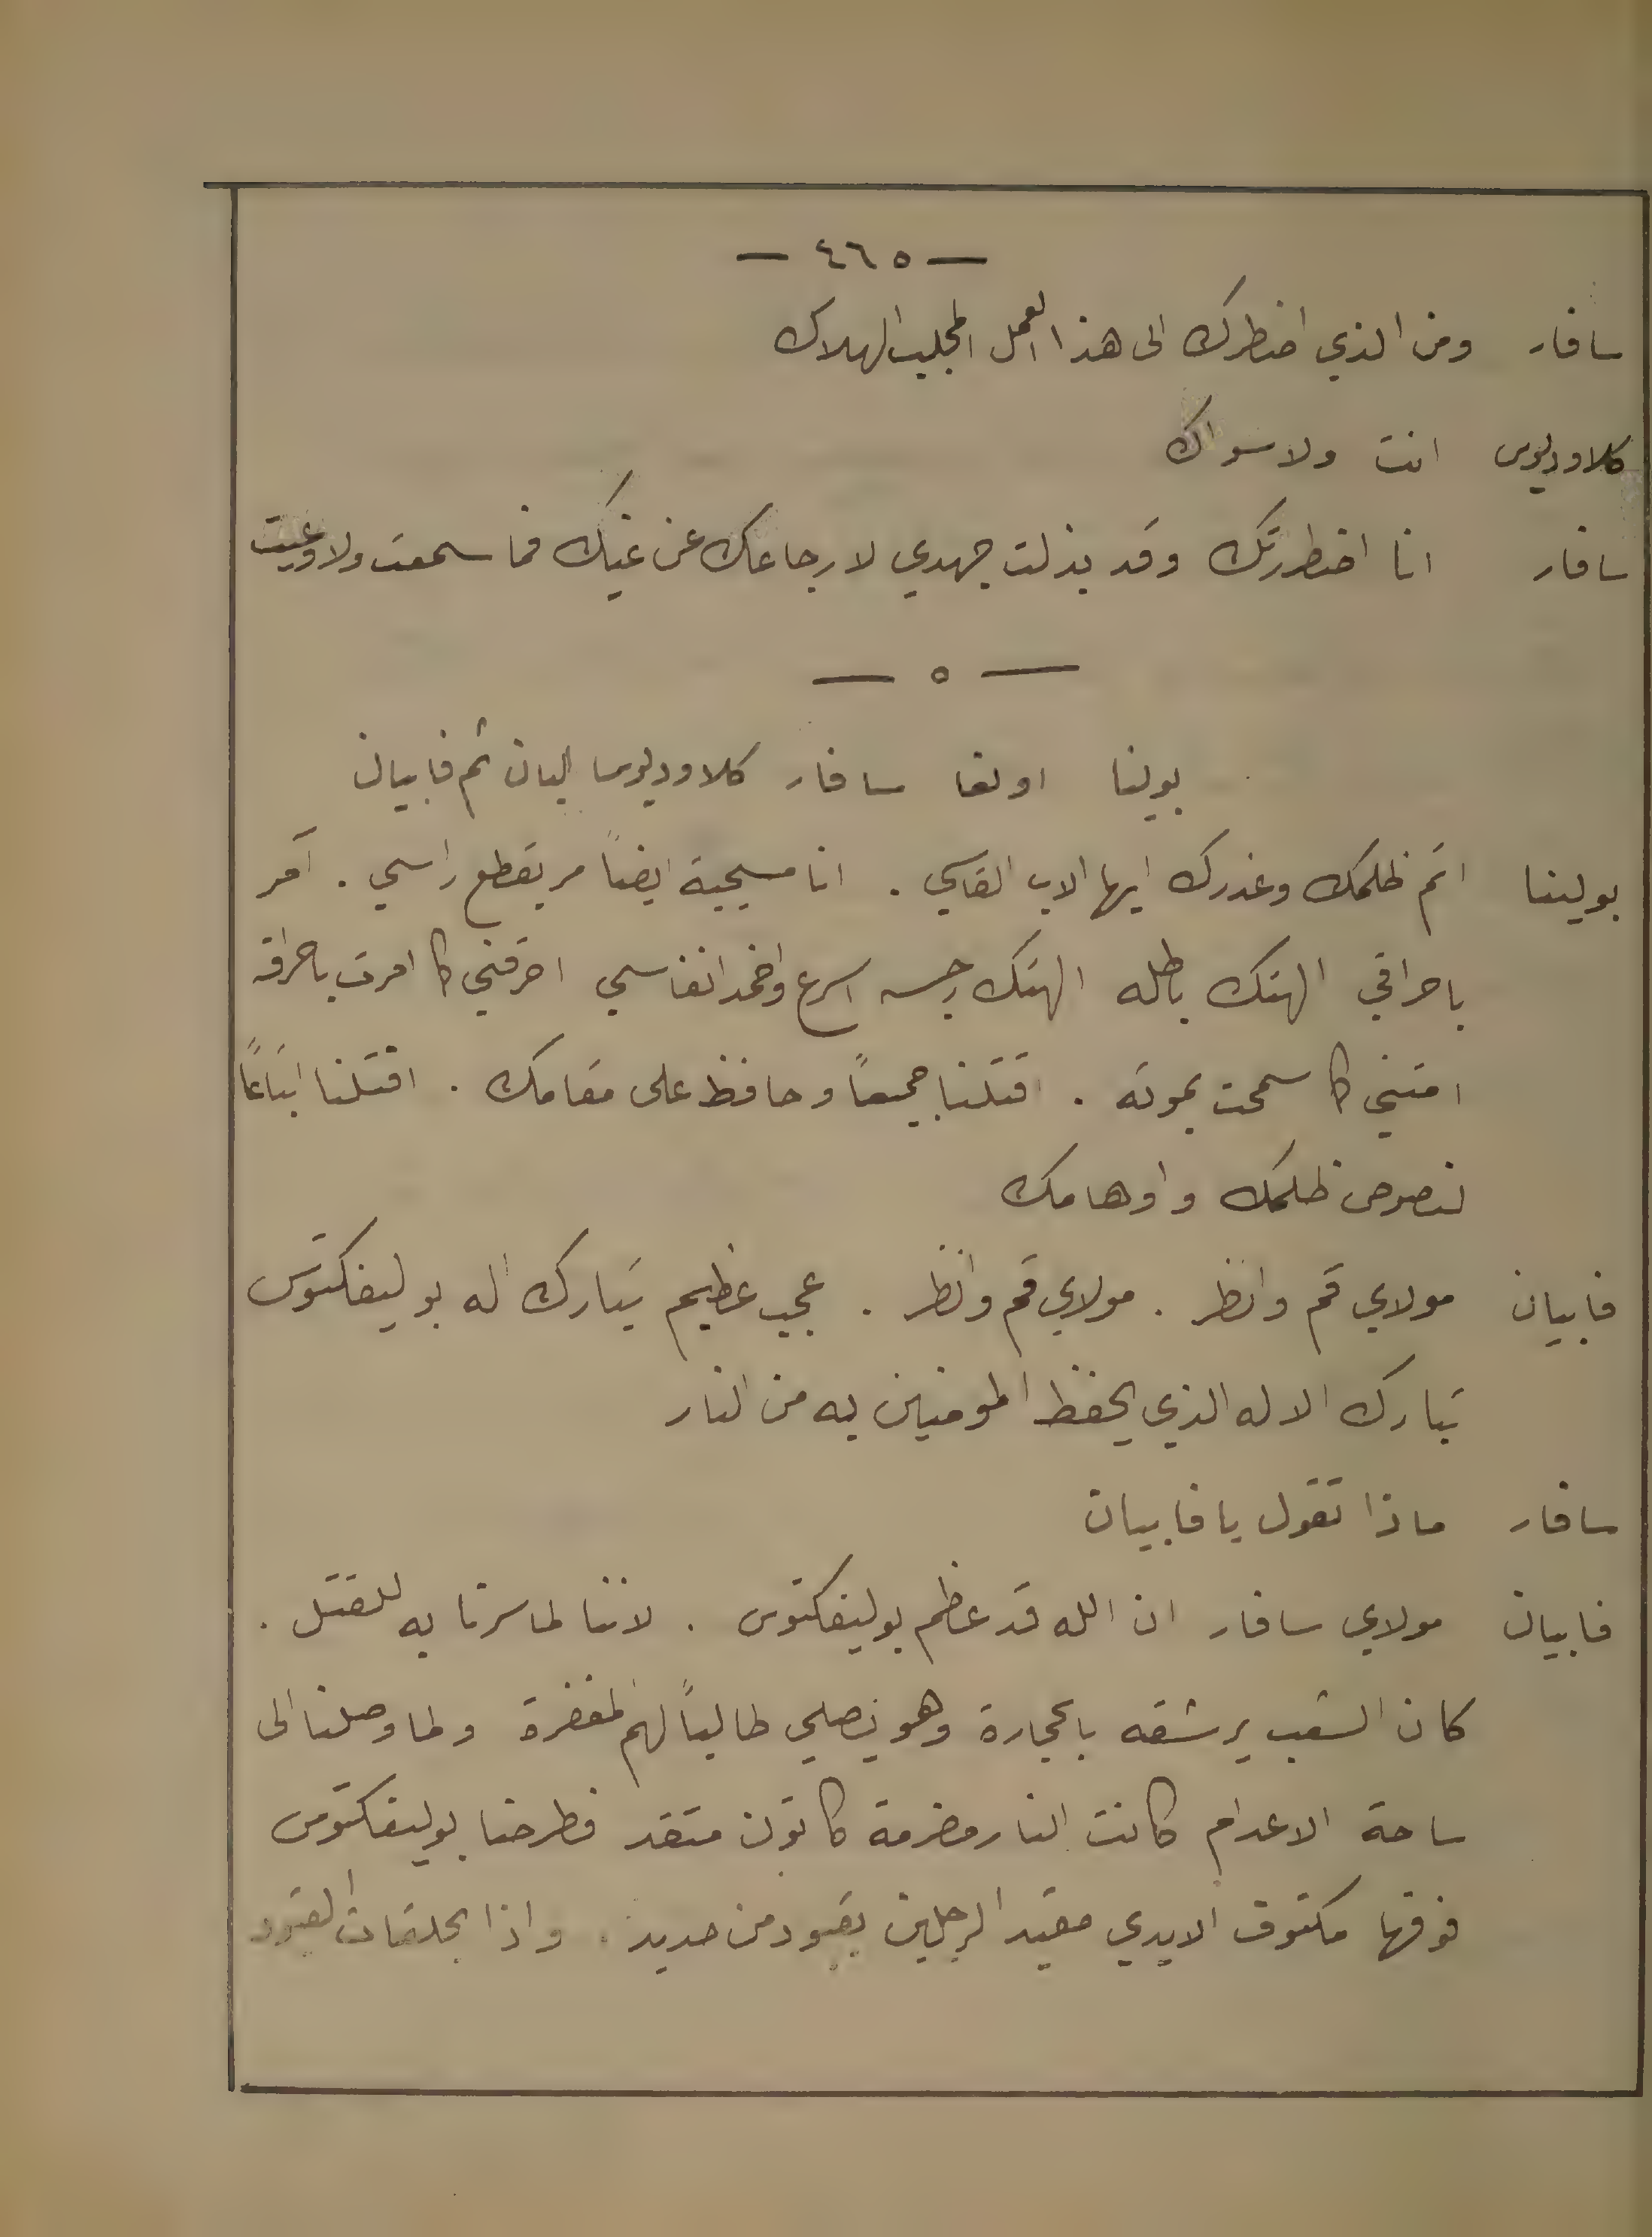 — ٤٦٥ —
سافار ومن الذي اضطرك الى هذا العمل المجلب الهلاك
كلاوديوس انت ولا سواك
سافار انا اضطررتك وقد بذلت جهدي لارجاعك عن غيك فما سمعت ولا وعيت
— ٥ —
بولينا اولغا سافار كلاوديوس البان ثم فابيان
بولينا اتم ظلمك وغدرك ايها الاب القاسي . انا مسيحية ايضاً مر بقطع راسي . آمر
باحراقي الهتك باطله الهتك رجسه اسرع واخمد انفاسي احرقني كما امرت باحراقه
امتني كما سمحت بموته . اقتلنا جميعاً وحافظ على مقامك . اقتلنا اتباعاً
لنصوص ظلمك واوهامك
فابيان مولاي قم وانظر . مولاي قم وانظر . عجب عظيم تبارك اله بوليفكتوس
تبارك الاله الذي يحفظ المومنين به من النار
سافار ماذا تقول يا فابيان
فابيان مولاي سافار ان الله قد عظم بوليفكتوس . لاننا لما سرنا به للقتل .
كان الشعب يرشقه بالحجارة وهو يصلي طالباً لهم المغفرة ولما وصلنا الى
ساحة الاعدام كانت النار مضرمة كاتون متقد فطرحنا بوليفكتوس
فوقها مكتوف الايدي مقيد الرجلين بقيود من حديد . واذا بحلقات القيود